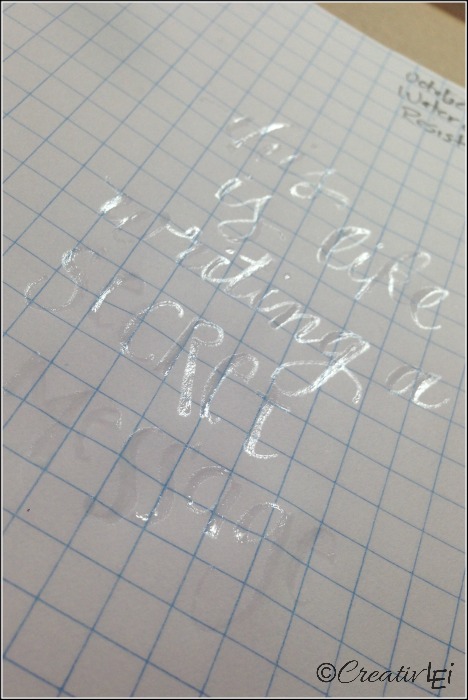 October
Water
Resist
this
is like
writing a
SECRET
Message
©CreativLEi